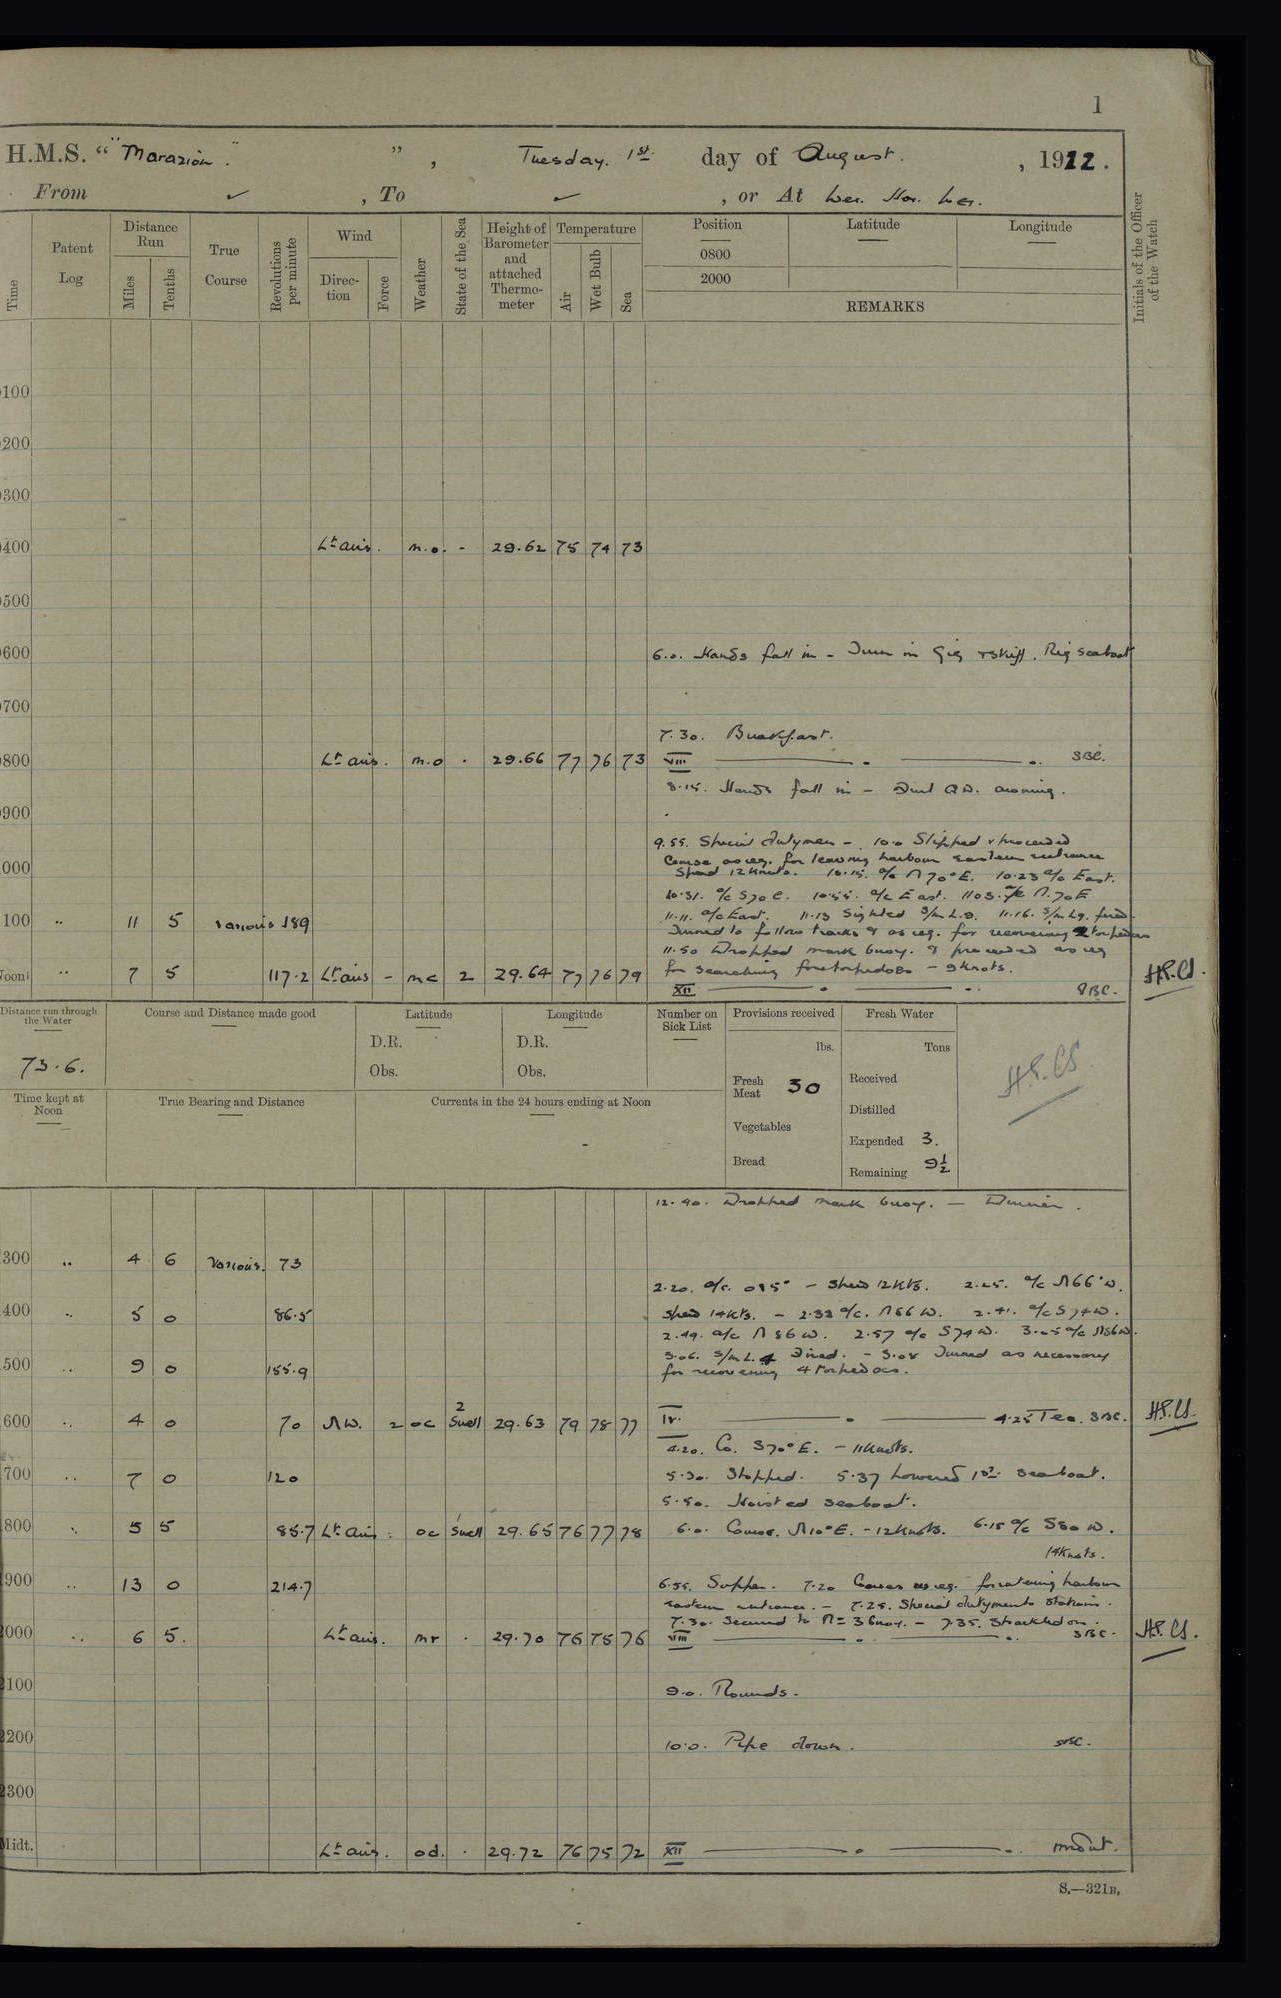 1
H.M.S. "Marazion." ", Tuesday. 1st. day of August. , 1922.
From ✓ , To ✓ , or At Wei. Hai. Wei.
Time
Patent Log
Distance Run
Miles
Tenths
True Course
Revolutions per minute
Wind
Direction
Force
Weather
State of the Sea
Height of Barometer and attached Thermometer
Temperature
Air
Wet Bulb
Sea
Position
0800
2000
Latitude
Longitude
REMARKS
Initials of the Officer of the Watch
100
200
300
400 Lt airs. m.o. - 29.62 75 74 73
500
600 6.0. Hands fall in - Turn in Gig & skiff. Rig seaboat
700
7.30. Breakfast.
800 Lt airs. m.o . 29.66 77 76 73 VIII SBC.
8.15. Hands fall in - Furl Q.D. awning.
900
9.55. Special dutymen - 10.0 Slipped & proceeded
Course as req. for leaving harbour eastern entrance
000 Speed 12 knots. 10.15. a/c N70°E. 10.23 a/c East.
10.31. a/c S70E. 10.55. a/c East. 1103. a/c N.70E
100 .. 11 5 various 189 11.11. a/c East. 11.13 Sighted S/m L.9. 11.16. S/m L9. fired.
Turned to follow tracks & as req. for recovering torpedoes
11.50 Dropped mark buoy. & proceeded as req
Noon .. 7 5 117.2 Lt airs - mc 2 29.64 77 76 79 for searching for torpedoes - 9 knots. H.P.CS.
XII SBC.
Distance run through the Water
73.6.
Course and Distance made good
Latitude
D.R.
Obs.
Longitude
D.R.
Obs.
Number on Sick List
Provisions received
lbs.
Fresh Meat 30
Vegetables
Bread
Fresh Water
Tons
Received
Distilled
Expended 3.
Remaining 9½
H.P.CS.
Time kept at Noon
True Bearing and Distance
Currents in the 24 hours ending at Noon
-
12.40. Dropped mark buoy. - Dinner.
300 .. 4 6 various. 73
2.20. a/c. 085° - Speed 12 Kts. 2.25. a/c N66°W.
400 .. 5 0 86.5 Speed 14 Kts. - 2.33 a/c. N86W. 2.41. a/c S74W.
2.49. a/c N86W. 2.57 a/c S74W. 3.05 a/c N86W.
500 .. 9 0 155.9 3.06. S/m L.4 Fired. - 3.08 Turned as necessary
for recovering 4 torpedoes.
600 .. 4 0 70 NW. 2 oc 2 Swell 29.63 79 78 77 IV. 4.25 Tea. SBC. H.P.CS.
4.20. Co. S70°E. - 11 Knots.
700 .. 7 0 120 5.30. Stopped. 5.37 Lowered 1st seaboat.
5.50. Hoisted seaboat.
800 .. 5 5 85.7 Lt Airs. oc Swell 29.65 76 77 78 6.0. Course. N10°E. - 12 Knots. 6.15 a/c S80W.
14 Knots.
900 .. 13 0 214.7 6.55. Supper. 7.20 Courses as req. for entering harbour
eastern entrance. - 7.25. Special dutymen to stations.
7.30. Secured to No 3 buoy. - 7.35. Shackled on.
2000 .. 6 5. Lt airs. mr . 29.70 76 75 76 VIII SBC. H.P.CS.
2100 9.0. Rounds.
2200 10.0. Pipe down. SBC.
2300
Midt. Lt airs. od. . 29.72 76 75 72 XII
S.—321B.